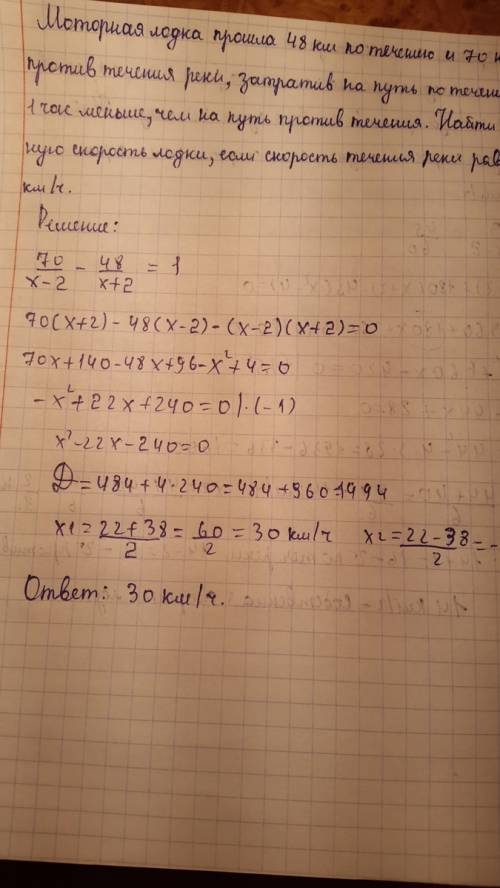 Моторная лодка прошла 48 км по течению и 70
против течения реки, затратив на путь по
1 час меньше, чем на путь против течения. Найти
скорость лодки, если скорость течения реки
км/ч.
Решение:
70/(x-2) - 48/(x+2) = 1
70(x+2)-48(x-2)-(x-2)(x+2)=0
70x+140-48x+96-x²+4=0
-x²+22x+240=0 |·(-1)
x²-22x-240=0
D=484+4·240=484+960=1444
x1=(22+38)/2=60/2=30 км/ч x2=(22-38)/2=-
Ответ: 30 км/ч.